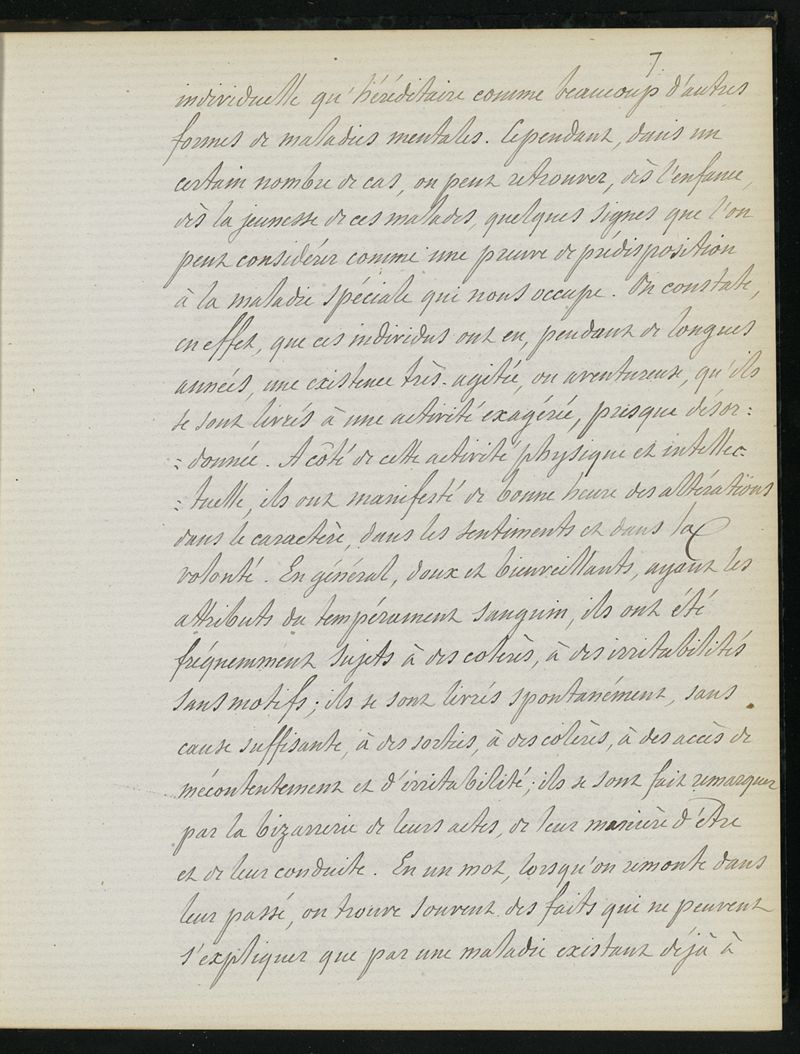 7
individuelle qu'héréditaire comme beaucoup d'autres
formes de maladies mentales. Cependant, dans un
certain nombre de cas, on peut retrouver, dès l'enfance,
dès la jeunesse de ces malades, quelques signes que l'on
peut considérer comme une preuve de prédisposition
à la maladie spéciale qui nous occupe. On constate,
en effet, que ces individus ont eu, pendant de longues
années, une existence très-agitée, ou aventureuse, qu'ils
se sont livrés à une activité exagérée, presque désor:
:donnée. A côté de cette activité physique et intellec:
:tuelle, ils ont manifesté de bonne heure des altérations
dans le caractère, dans les sentiments et dans la
volonté. En général, doux et bienveillants, ayant les
attributs du tempérament sanguin, ils ont été
fréquemment sujets à des colères, à des irritabilités
sans motifs; ils se sont livrés spontanément, sans
cause suffisante, à des sorties, à des colères, à des accès de
mécontentement et d'irritabilité; ils se sont fait remarquer
par la bizarrerie de leurs actes, de leur manière d'être
et de leur conduite. En un mot, lorsqu'on remonte dans
leur passé, on trouve souvent des faits qui ne peuvent
s'expliquer que par une maladie existant déjà à